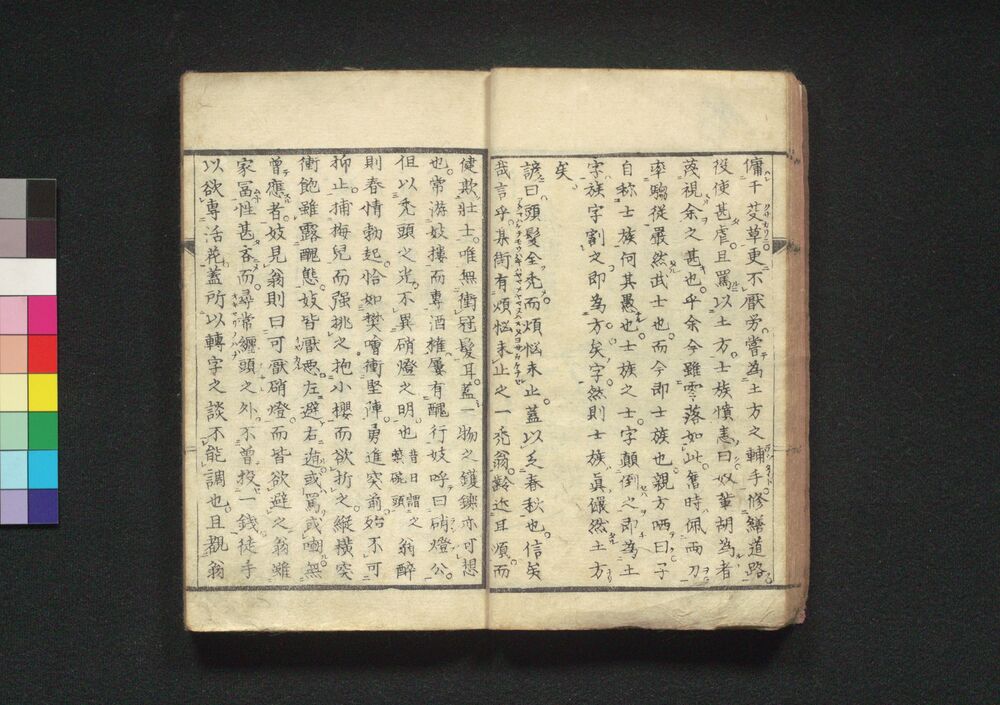 傭于芟草更不厭労嘗為土方之輔手修繕道路
役使甚虐且罵以土方士族憤恚曰奴輩胡為者
蔑視余之甚也乎余今雖零落如此舊時佩両刀
率騶從嚴然武士也而今即士族也親方哂曰子
自称士族何其愚也士族之士字顛倒之即為土
字族字割之即為方矣字然則士族真儼然土方
矣
諺曰頭髮全禿而煩悩未止蓋以乏春秋也信矣
哉言乎某街有煩悩未止之一禿翁齡迩耳順而
健欺壮士唯無衝冠髮耳蓋一物之鑊鑠亦可想
也常游妓摟而專酒雄屢有醜行妓呼曰硝燈公
但以禿頭之光不異硝燈之明也昔日謂之薬礶頭翁醉
則春情勃起恰如樊噲衝堅陣勇進突翁殆不可
抑止捕梅兒而强挑之抱小櫻而欲折之縦横突
衝飽雖露醜態妓皆厭悪左避右遁或罵或嘲無
曽應者妓見翁則曰可厭硝燈而皆欲避之翁雖
家冨性甚吝而尋常纏頭之外不曽投一錢徒手
以欲專活花蓋所以轉字之談不能調也且觀翁